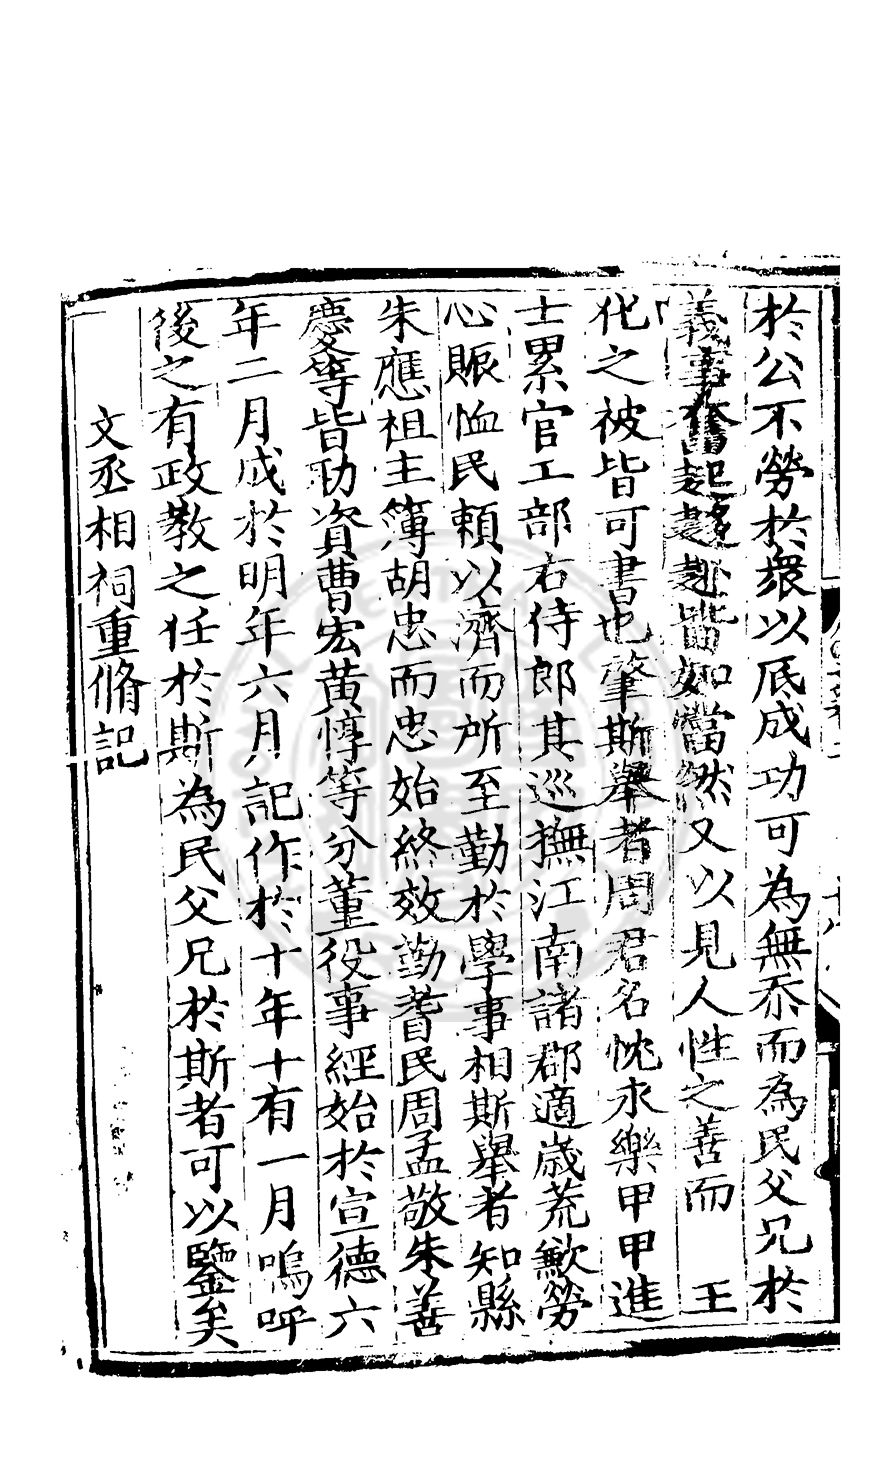 於公不勞於衆以底成功可為無忝而為民父兄於
義事奮起趨赴皆如當然又以見人性之善而　王
化之被皆可書也肇斯舉者周君名忱永樂甲申進
士累官工部右侍郎其巡撫江南諸郡適歳荒歉勞
心賑恤民頼以濟而所至勤於學事相斯舉者知縣
朱應祖主簿胡忠而忠始終效勤耆民周孟敬朱善
慶等皆劝資曹宏黄惇等分董役事經始於宣德六
年二月成於明年六月記作於十年十有一月嗚呼
後之有政教之任於斯為民父兄於斯者可以鑒矣
文丞相祠重脩記